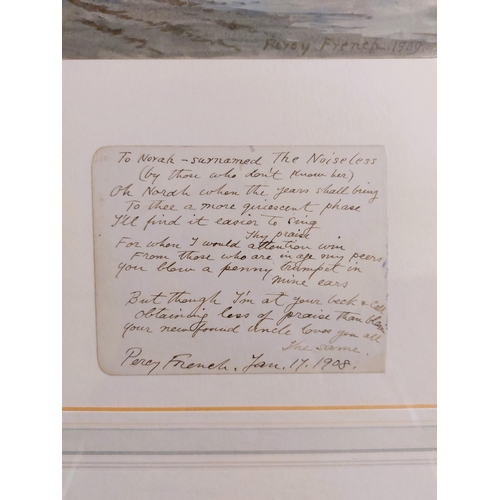 Percy French 1909.
To Norah - surnamed The Noiseless
(by those who don't know her)
Oh Norah when the years shall bring
To thee a more quiescent phase
I'll find it easier to sing
Thy praise
For when I would attention win
From those who are in age my peers
you blow a penny trumpet in
mine ears
But though I'm at your beck & call
obtaining less of praise than blame
your newfound uncle loves you all
The same.
Percy French. Jan. 17. 1908.